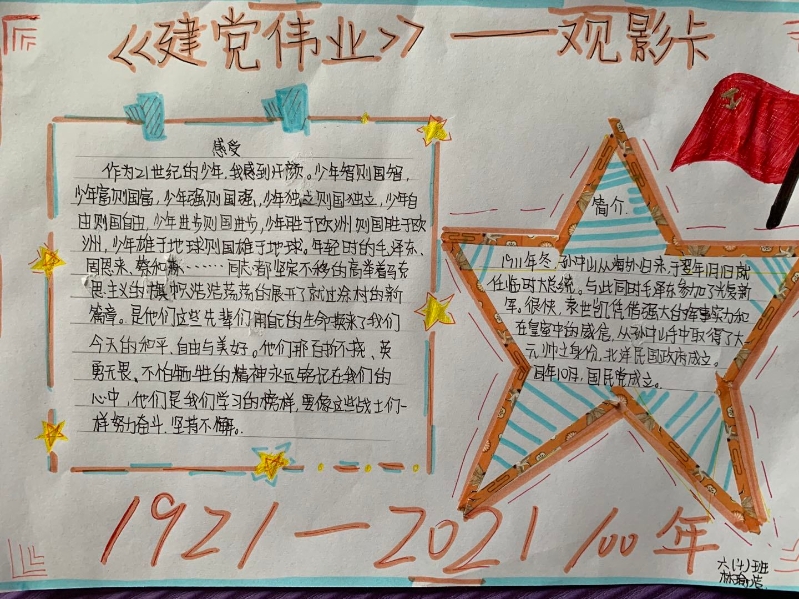 《建党伟业》——观影卡
感受
作为21世纪的少年，我感到开颜。少年智则国智，
少年富则国富，少年强则国强，少年独立则国独立，少年自
由则国自由，少年进步则国进步，少年胜于欧洲则国胜于欧
洲，少年雄于地球则国雄于地球。年轻时的毛泽东、
周恩来、蔡和森……同志都坚定不移的高举着马克
思主义的旗帜浩浩荡荡的展开了
篇章。是他们这些先辈们用自己的生命换来了我们
今天的和平、自由与美好。他们那百折不挠、英
勇无畏、不怕牺牲的精神永远铭记在我们的
心中，他们是我们学习的榜样，要像这些战士们一
样努力奋斗，坚持不懈。
简介
1911年冬，孙中山从海外归来，于翌年1月1日就
任临时大总统。与此同时毛泽东参加了光复新
军。很快，袁世凯凭借强大的军事实力和
在皇室中的威信，从孙中山手中取得了大
元帅之身份，北洋民国政府成立。
同年10月，国民党成立。
1921—2021 100年
六(4)班
林